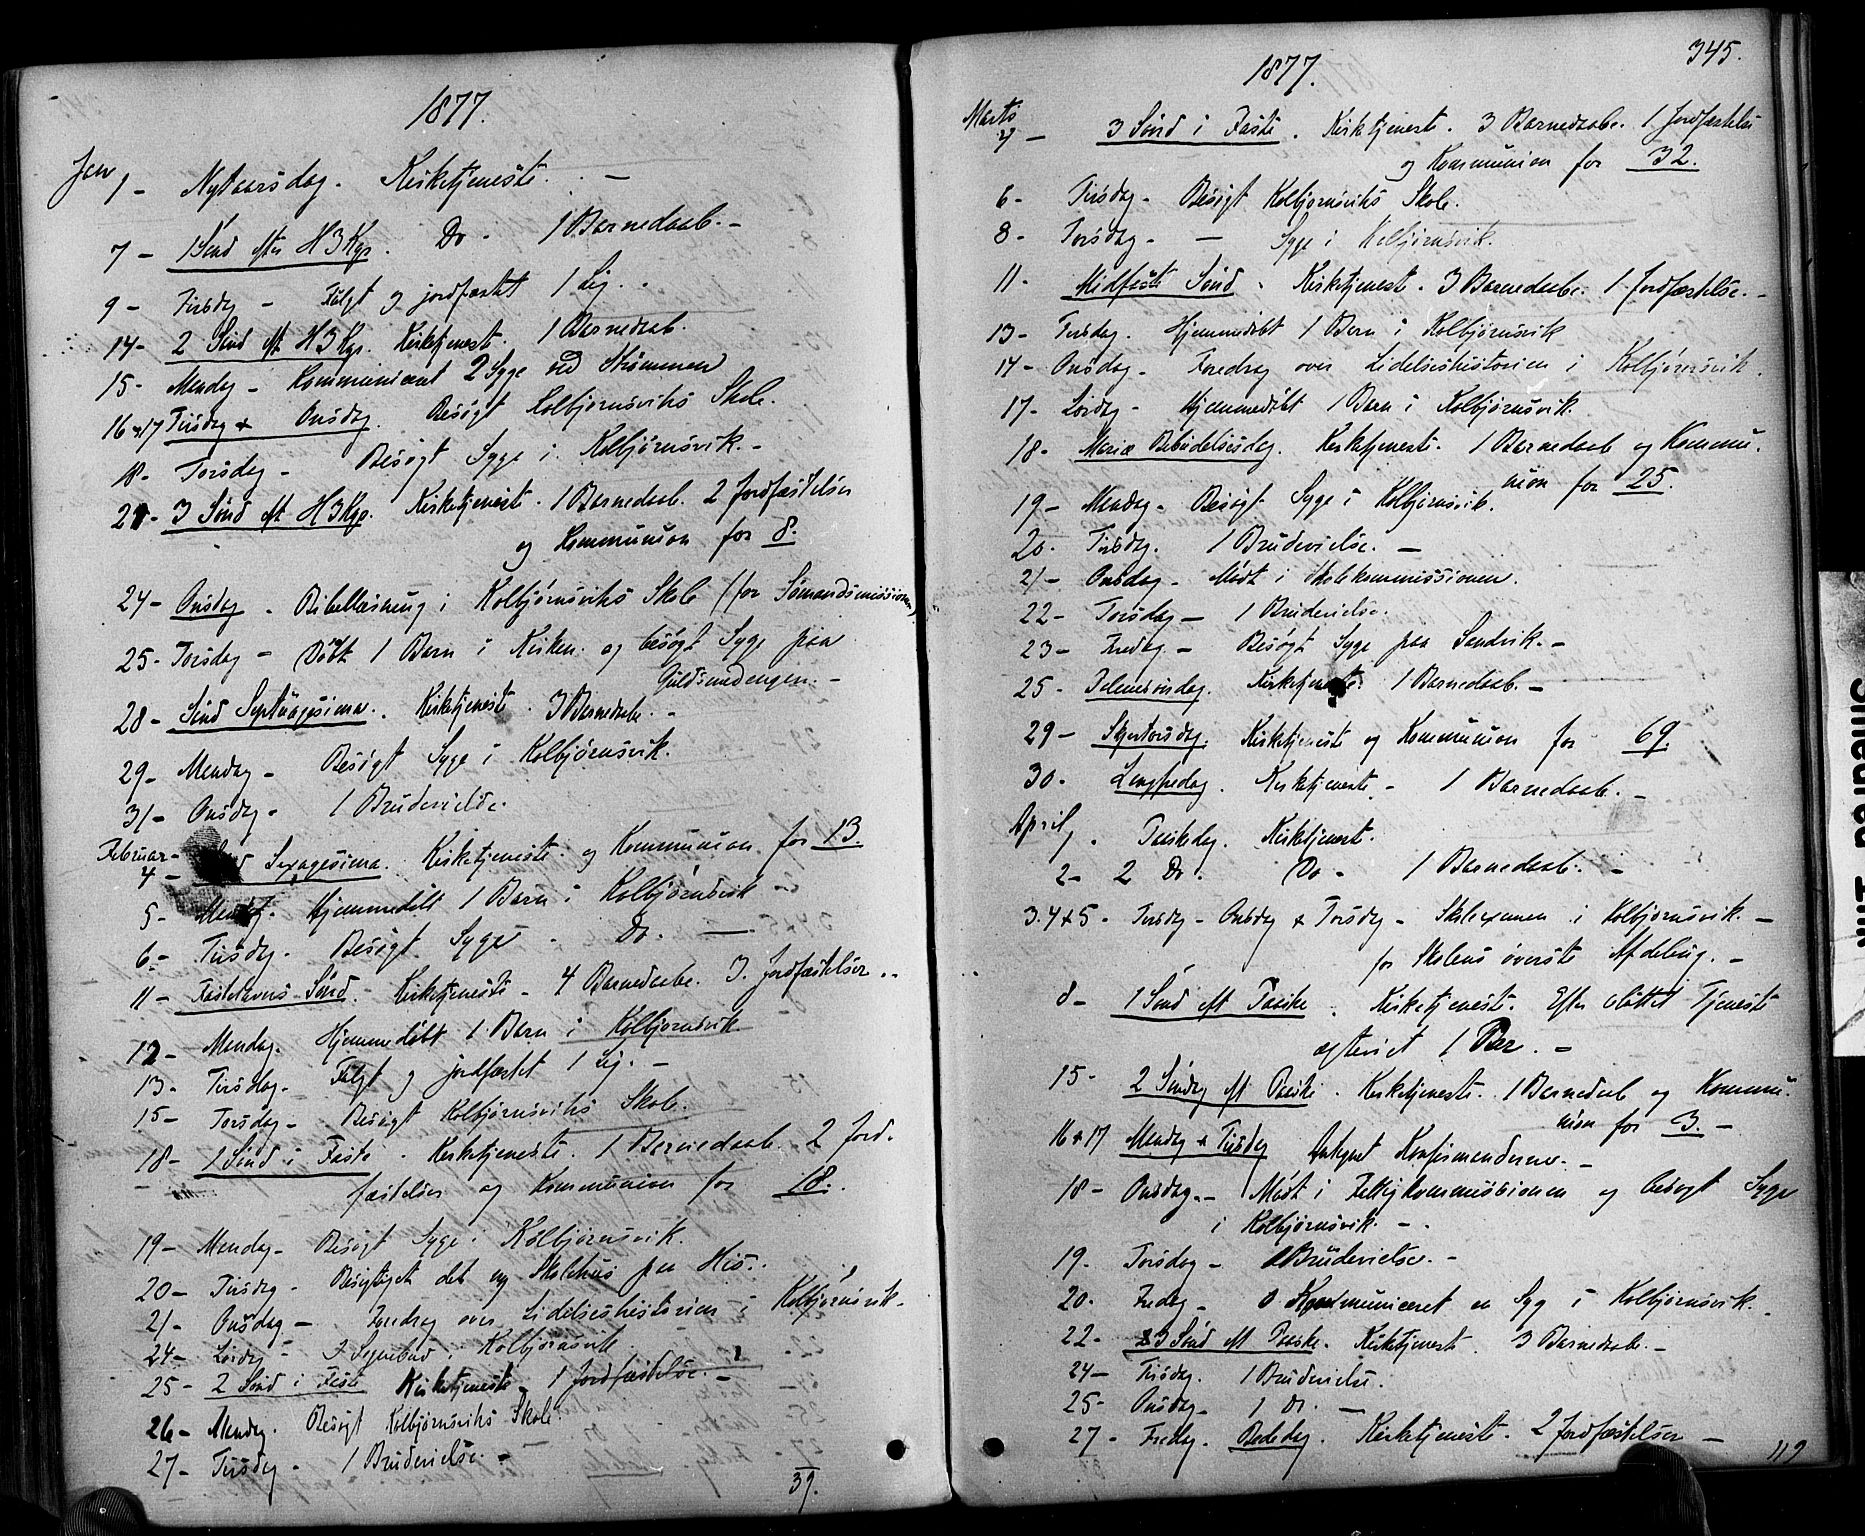 1877.
Jan 1 - Nytaarsdag. Kirketjeneste. -
7 - 1 Sønd efter H 3 Kgr. Do. 1 Barnedaab. -
9 - Tirsdag - Fulgt og jordfæstet 1 Lig. -
14 - 2 Sønd eft H 3 Kgr. Kirketjeneste. 1 Barnedaab.
15 - Mandag - Kommuniceret 2 Syge ved Strømmen
16 & 17 Tirsdag & Onsdag. Besøgt Kolbjørnsviks Skole.
18 - Torsdag - Besøgt Syge i Kolbjørnsvik. -
21 - 3 Sønd eft H 3 Kgr. Kirketjeneste. 1 Barnedaab. 2 Jordfæstelser
og Kommunion for 8.
24 - Onsdag - Bibellæsning i Kolbjørnsviks Skole (for Sømandsmissionen)
25 - Torsdag - Døbt 1 Barn i Kirken og besøgt Syge paa
Guldsmedengen. -
28 - Sønd Septuagesima. Kirketjeneste. 3 Barnedaabe. -
29 - Mandag - Besøgt Syge i Kolbjørnsvik.
31 - Onsdag - 1 Brudevielse.
Februar -
4 - Sexagesima. Kirketjeneste og Kommunion for 13.
5 - Mandag. Hjemmedøbt 1 Barn i Kolbjørnsvik -
6 - Tirsdag. Besøgt Syge - Do. -
11 - Fastelavns Sønd. - Kirketjeneste - 4 Barnedaabe. 3 Jordfæstelser. -
12 - Mandag. Hjemmedøbt 1 Barn i Kolbjørnsvik
13 - Tirsdag. Fulgt og jordfæstet 1 Lig. -
15 - Torsdag - Besøgt Kolbjørnsviks Skole.
18 - 1 Sønd i Faste. Kirketjeneste. 1 Barnedaab. 2 Jord-
fæstelser og Kommunion for 18.
19 - Mandag - Besøgt Syge i Kolbjørnsvik.
20 - Tirsdag - Besigtiget det ny Skolehus paa His.
21 - Onsdag - Foredrag over Lidelseshistorien i Kolbjørnsvik -
24 - Lørdag - Kolbjørnsvik
25 - 2 Sønd i Faste Kirketjeneste - 1 Jordfæstelse. -
26 - Mandag. Besøgt Kolbjørnsviks Skole.
27 - Tirsdag - 1 Brudevielse -
39.
345.
1877.
Marts
4 - 3 Sønd i Faste. Kirketjeneste. 3 Barnedaabe. 1 Jordfæstelse
og Kommunion for 32.
6 - Tirsdag - Besøgt Kolbjørnsviks Skole.
8 - Torsdag - - Syge i Kolbjørnsvik.
11 - Midfaste Sønd. Kirketjeneste. 3 Barnedaabe. 1 Jordfæstelse. -
13 - Tirsdag. Hjemmedøbt 1 Barn i Kolbjørnsvik
14 - Onsdag - Foredrag over Lidelseshistorien i Kolbjørnsvik.
17 - Lørdag - Hjemmedøbt 1 Barn i Kolbjørnsvik.
18 - Mariæ Bebudelsesdag. Kirketjeneste. 1 Barnedaab og Kommu-
nion for 25.
19 - Mandag - Besøgt Syge i Kolbjørnsvik.
20 - Tirsdag. 1 Brudevielse. -
21 - Onsdag - Mødt i Skolekommissionen.
22 - Torsdag - 1 Brudevielse.
23 - Fredag - Besøgt Syge paa Sandvik. -
25 - Palmesøndag. Kirketjeneste. 1 Barnedaab. -
29 - Skjertorsdag. Kirketjeneste og Kommunion for 69.
30 - Langfredag. Kirketjeneste - 1 Barnedaab. -
April
1. Paaskedag. Kirketjeneste.
2 - 2 Do. Do - 1 Barnedaab. -
3. 4 & 5 - Tirsdag - Onsdag & Torsdag - Skoleexamen i Kolbjørnsvik. -
for Skolens øverste Afdeling. -
8 - 1 Sønd eft Paaske. Kirketjeneste. Efter sluttet Tjeneste
ægteviet 1 Par. -
15 - 2 Søndag eft Paaske. Kirketjeneste. 1 Barnedaab og Kommu-
nion for 3. -
16 & 17 Mandag & Tirsdag Antegnet Konfirmanderne. -
18 - Onsdag. - Mødt i Fattigkommissionen og besøgt Syge
i Kolbjørnsvik. -
19. Torsdag - Brudevielse. -
20. Fredag - Kommuniceret en Syg i Kolbjørnsvik. -
22 - 3 Sønd eft Paaske. Kirketjeneste. 3 Barnedaabe. -
24 - Tirsdag. 1 Brudevielse.
25 - Onsdag - 1 Do. -
27 - Fredag. Bededag. Kirketjeneste. 2 Jordfæstelser -
119